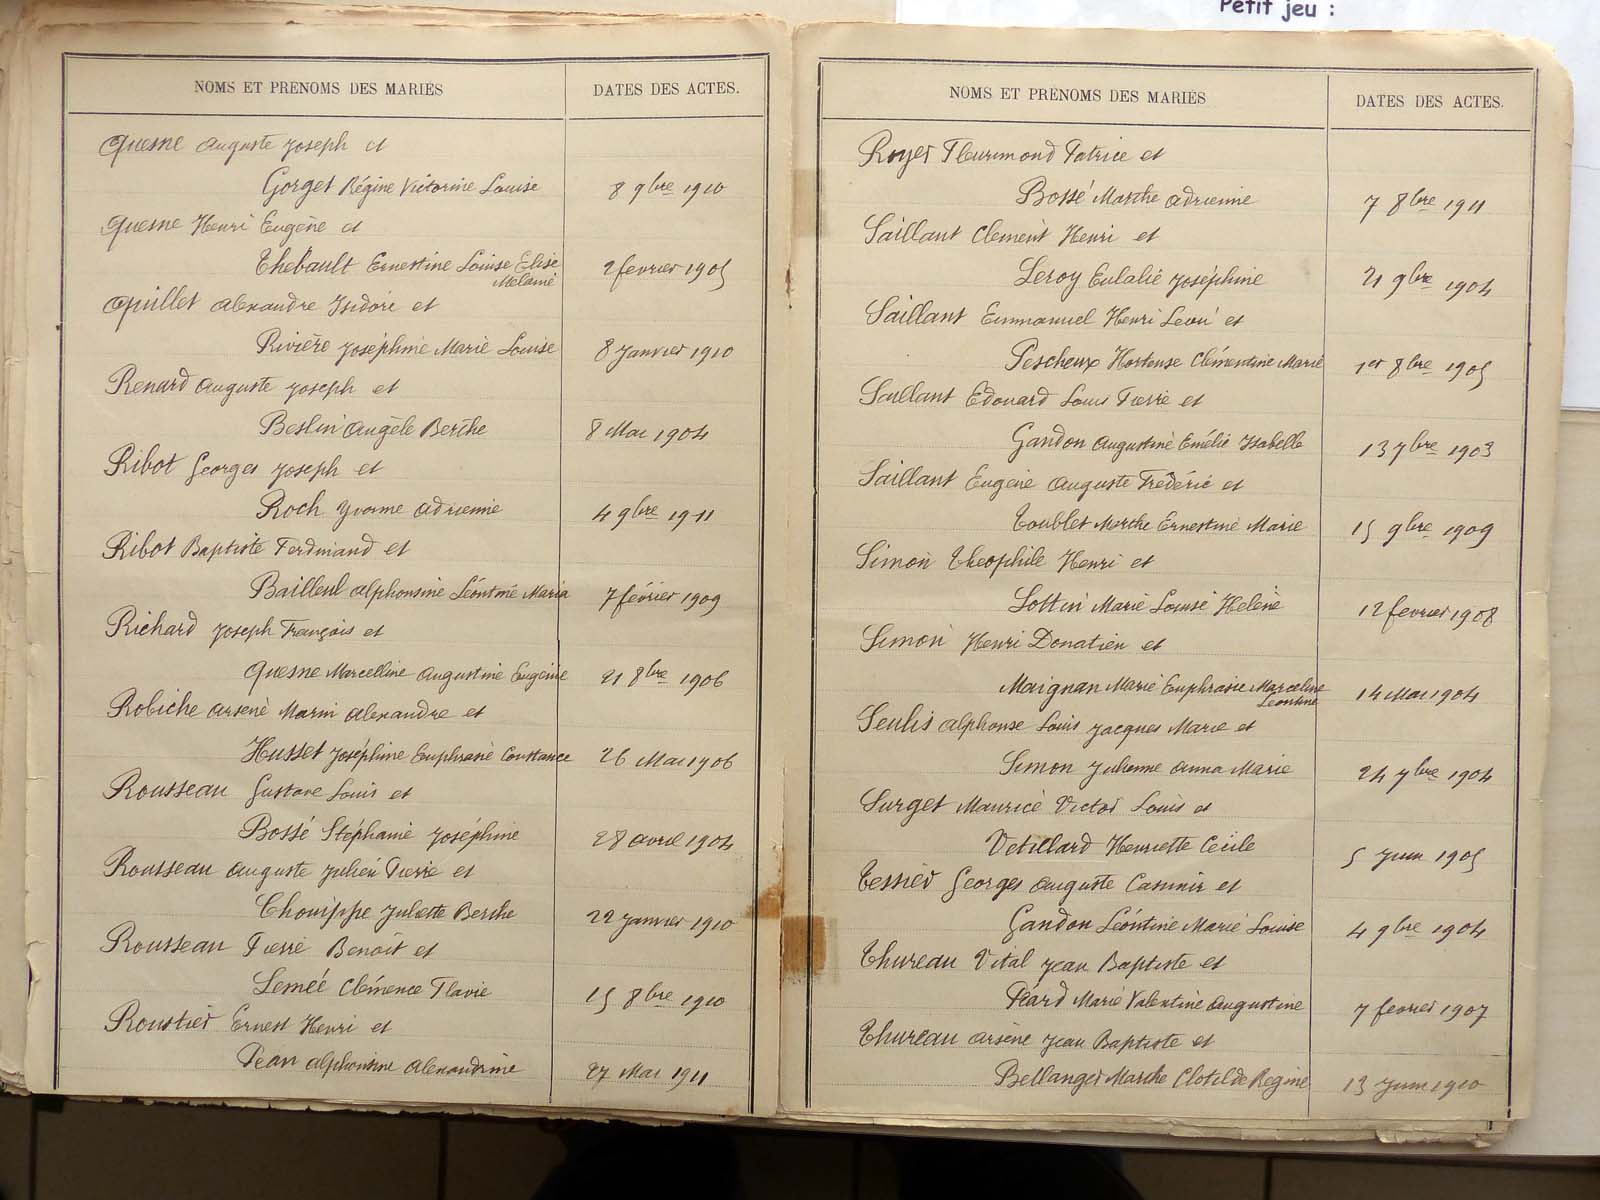 Petit jeu :
NOMS ET PRENOMS DES MARIES
DATES DES ACTES.
Quesne Auguste Joseph et
Gorget Régine Victorine Louise 8 9bre 1910
Quesne Henri Eugène et
Thebault Ernestine Louise Elise 2 fevrier 1905
Melanie
Quillet Alexandre Isidore et
Rivière Joséphine Marie Louise 8 Janvier 1910
Renard Auguste Joseph et
Beslin Angèle Berthe 8 Mai 1904
Ribot Georges Joseph et
Roch Yvonne Adrienne 4 9bre 1911
Ribot Baptiste Ferdinand et
Bailleul Alphonsine Léontine Maria 7 février 1909
Richard Joseph François et
Quesne Marcelline Augustine Eugénie 21 8bre 1906
Robiche Arsenè Marin Alexandre et
Husset Joséphine Euphrasie Constance 26 Mai 1906
Rousseau Gustave Louis et
Bossé Stéphanie Joséphine 28 avril 1904
Rousseau Auguste Julien Pierre et
Chouippe Juliette Berthe 22 Janvier 1910
Rousseau Pierre Benoît et
Lemée Clémence Flavie 15 8bre 1910
Roustier Ernest Henri et
Pean Alphonsine Alexandrine 27 Mai 1911
NOMS ET PRENOMS DES MARIES
DATES DES ACTES.
Royer Fleurimond Patrice et
Bossé Marthe Adrienne 7 8bre 1911
Saillant Clement Henri et
Leroy Eulalie Joséphine 21 9bre 1904
Saillant Emmanuel Henri Leon et
Pescheux Hortense Clémentine Marie 1er 8bre 1905
Saillant Edouard Louis Pierre et
Gandon Augustine Emélie Isabelle 13 7bre 1903
Saillant Eugène Auguste Frédéric et
Toublet Marthe Ernestine Marie 15 9bre 1909
Simon Theophile Henri et
Lottin Marie Louise Helène 12 fevrier 1908
Simon Henri Donatien et
Maignan Marie Euphrasie Marceline 14 Mai 1904
Leontine
Seulis Alphonse Louis Jacques Marie et
Simon Julienne Anna Marie 24 7bre 1904
Surget Maurice Victor Louis et
Vetillard Henriette Cécile 5 Juin 1905
Tessier Georges Auguste Casimir et
Gandon Léontine Marie Louise 4 9bre 1904
Thureau Vital Jean Baptiste et
Piard Marie Valentine Augustine 7 fevrier 1907
Thureau Arsène Jean Baptiste et
Bellanger Marthe Clotilde Regine 13 Juin 1910